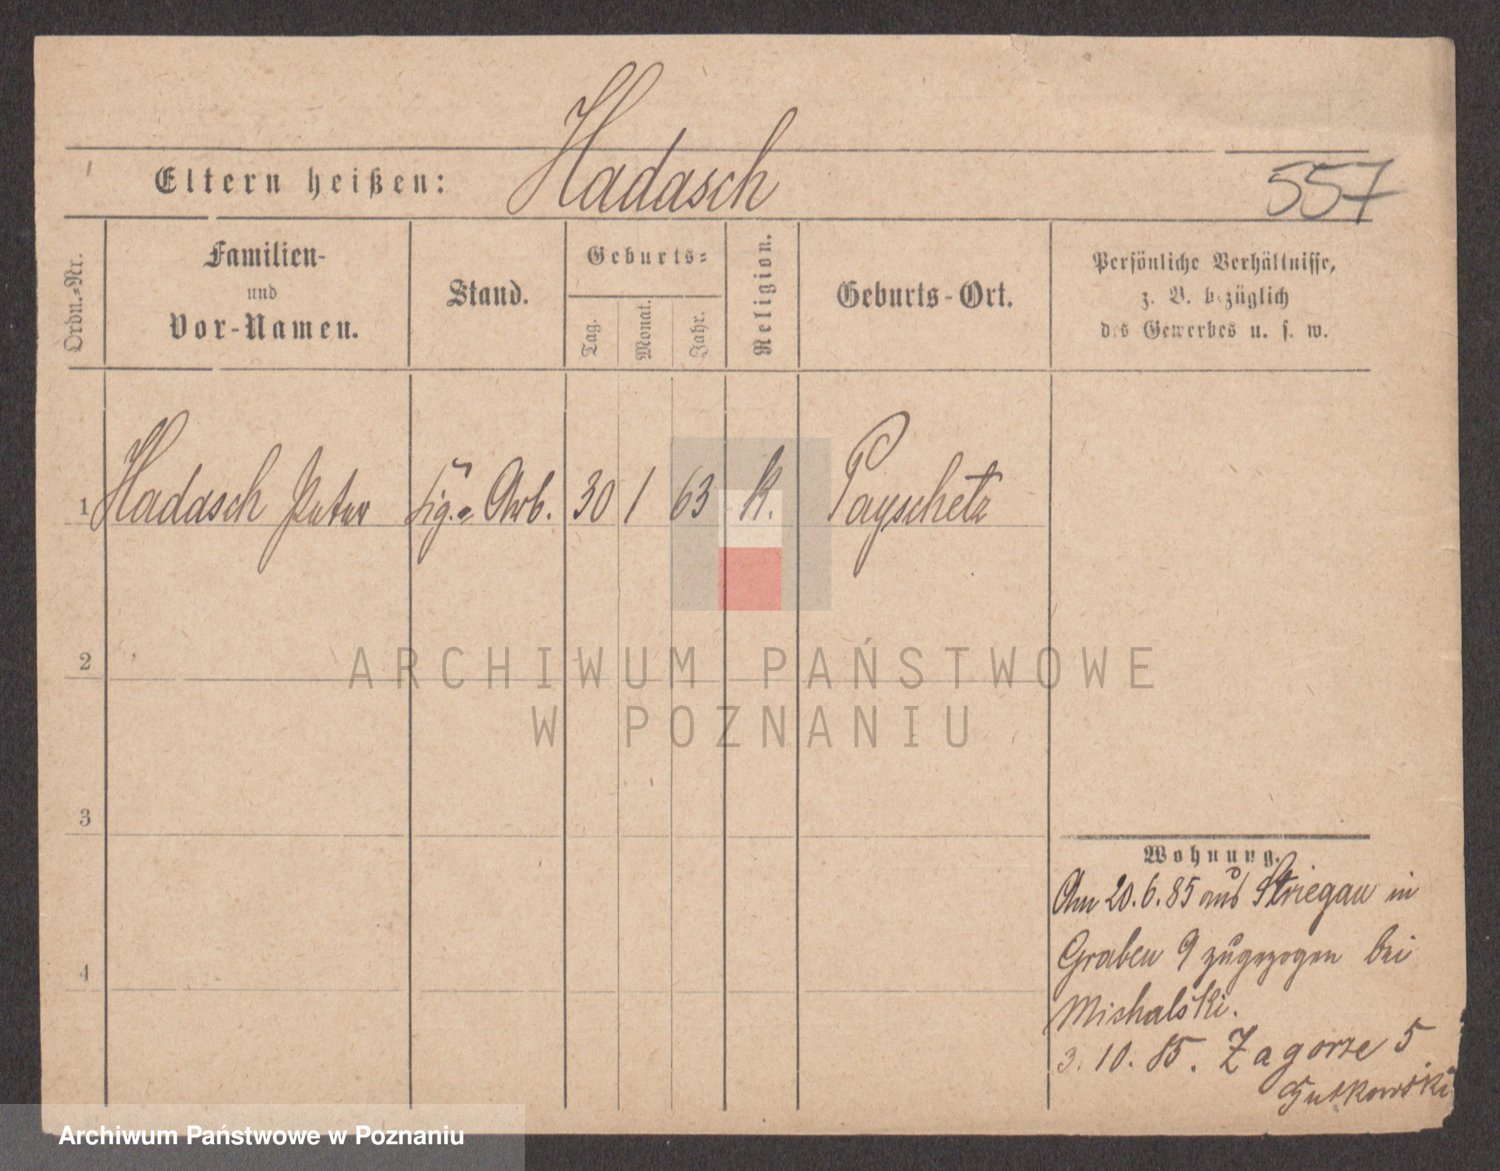 Hadasch
Eltern heißen:
557
Ordn.-Nr.
Familien-
und
Vor-Namen.
Stand.
Geburts-
Tag.
Monat.
Jahr.
Religion.
Geburts-Ort.
Persönliche Verhältnisse,
z. B. bezüglich
des Gewerbes u. s. w.
1 Hadasch Peter Zig.- Arb. 30 1 63 K. Payschetz
2
ARCHIWUM PAŃSTWOWE
W POZNANIU
3
Wohnung.
Am 20.6.85 aus Striegau in
Graben 9 zugezogen bei
4
Michalski.
3.10.85. Zagorze 5
Gutkowski
Archiwum Państwowe w Poznaniu